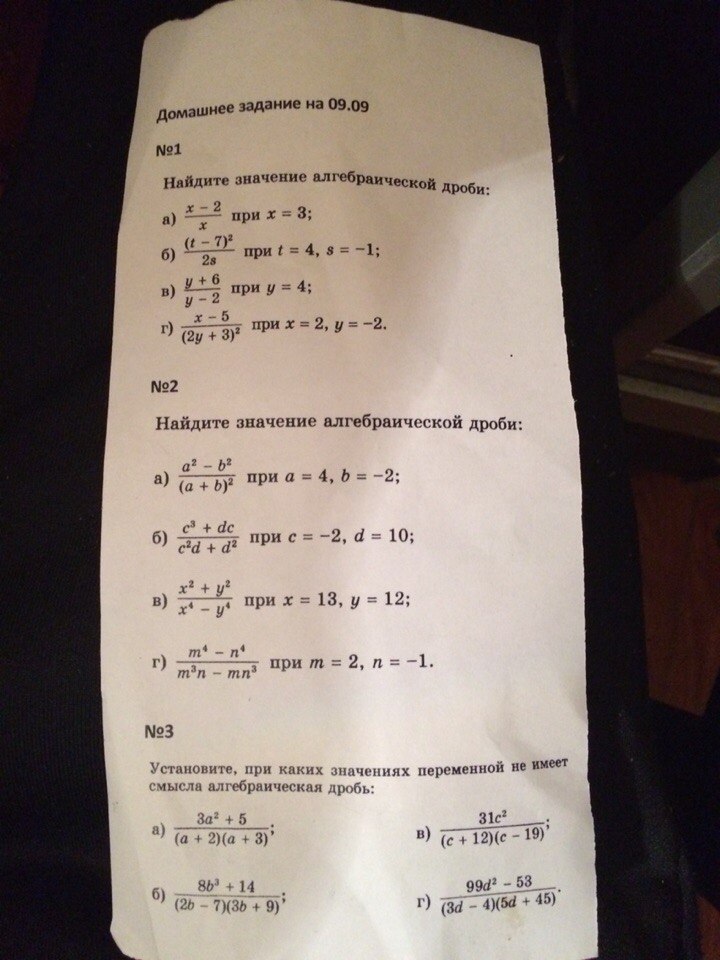 Домашнее задание на 09.09
№1
Найдите значение алгебраической дроби:
а) (x − 2)/x при x = 3;
б) (t − 7)²/2s при t = 4, s = −1;
в) (y + 6)/(y − 2) при y = 4;
г) (x − 5)/(2y + 3)² при x = 2, y = −2.
№2
Найдите значение алгебраической дроби:
а) (a² − b²)/(a + b)² при a = 4, b = −2;
б) (c³ + dc)/(c²d + d²) при c = −2, d = 10;
в) (x² + y²)/(x⁴ − y⁴) при x = 13, y = 12;
г) (m⁴ − n⁴)/(m³n − mn³) при m = 2, n = −1.
№3
Установите, при каких значениях переменной не имеет
смысла алгебраическая дробь:
а) (3a² + 5)/((a + 2)(a + 3)); в) 31c²/((c + 12)(c − 19));
б) (8b³ + 14)/((2b − 7)(3b + 9)); г) (99d² − 53)/((3d − 4)(5d + 45)).